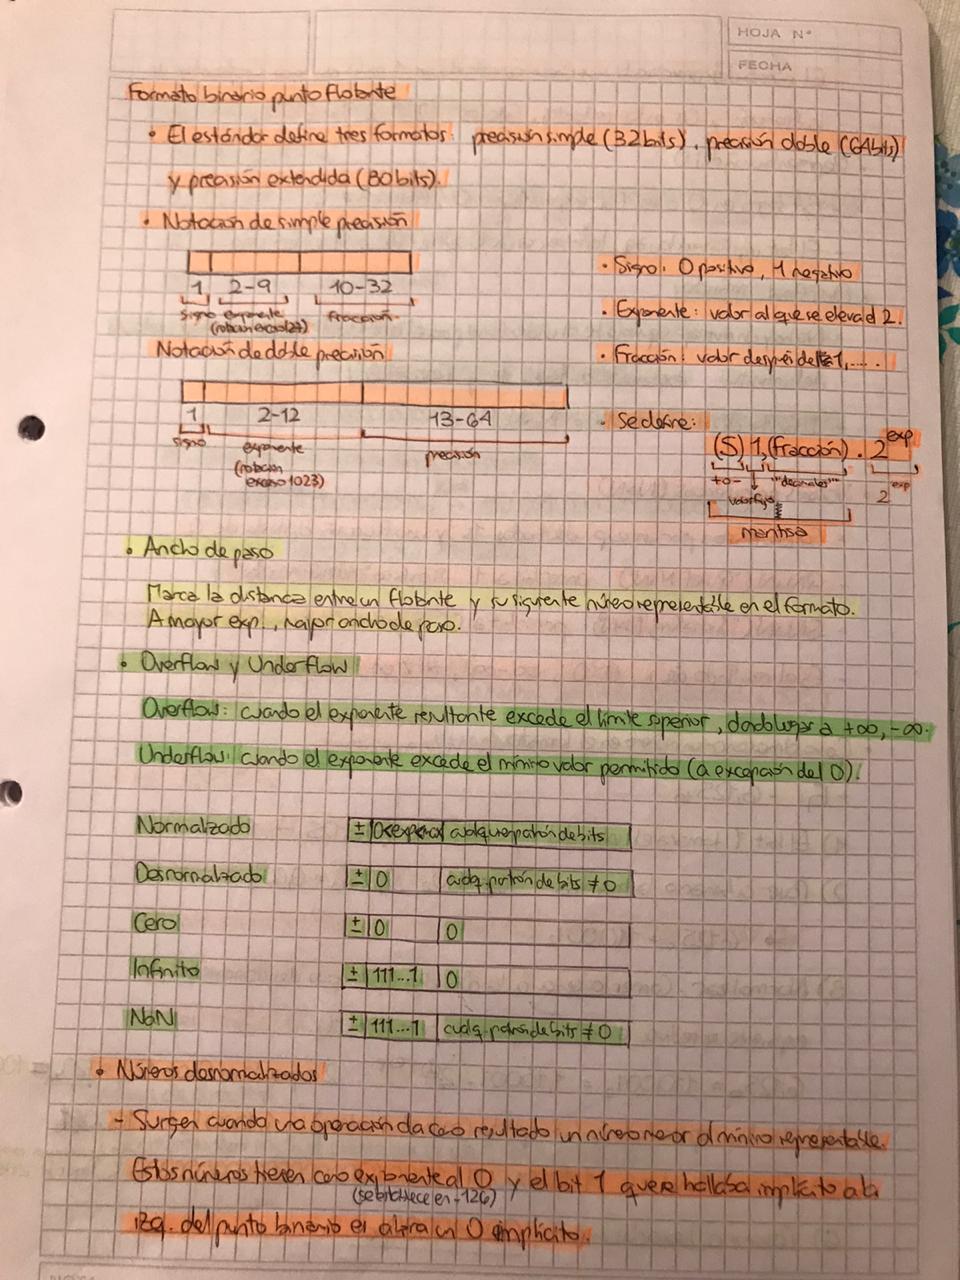 HOJA Nº
FECHA
Formato binario punto flotante
• El estándar define tres formatos: precisión simple (32 bits), precisión doble (64 bits)
y precisión extendida (80 bits).
• Notación de simple precisión
1 2-9 10-32
signo exponente fracción
(notación exceso 127)
• Signo: 0 positivo, 1 negativo
• Exponente: valor al que se eleva el 2.
• Fracción: valor después de 1,.....
Notación de doble precisión
1 2-12 13-64
signo exponente precisión
(notación
exceso 1023)
• Se define:
(S) 1,(fracción) · 2^exp
+ o - "decimales" 2^exp
valor fijo
mantisa
• Ancho de paso
Marca la distancia entre un flotante y su siguiente número representable en el formato.
A mayor exp., mayor ancho de paso.
• Overflow y Underflow
Overflow: cuando el exponente resultante excede el límite superior, dando lugar a +∞, -∞.
Underflow: cuando el exponente excede el mínimo valor permitido (a excepción del 0).
Normalizado ± 0<exp<max cualquier patrón de bits
Desnormalizado ± 0 cualq. patrón de bits ≠ 0
Cero ± 0 0
Infinito ± 111...1 0
NaN ± 111...1 cualq. patrón de bits ≠ 0
• Números desnormalizados
- Surgen cuando una operación da como resultado un número menor al mínimo representable.
Estos números tienen como exponente al 0 y el bit 1 que se hallaba implícito a la
(se establece en -126)
izq. del punto binario es ahora un 0 implícito.